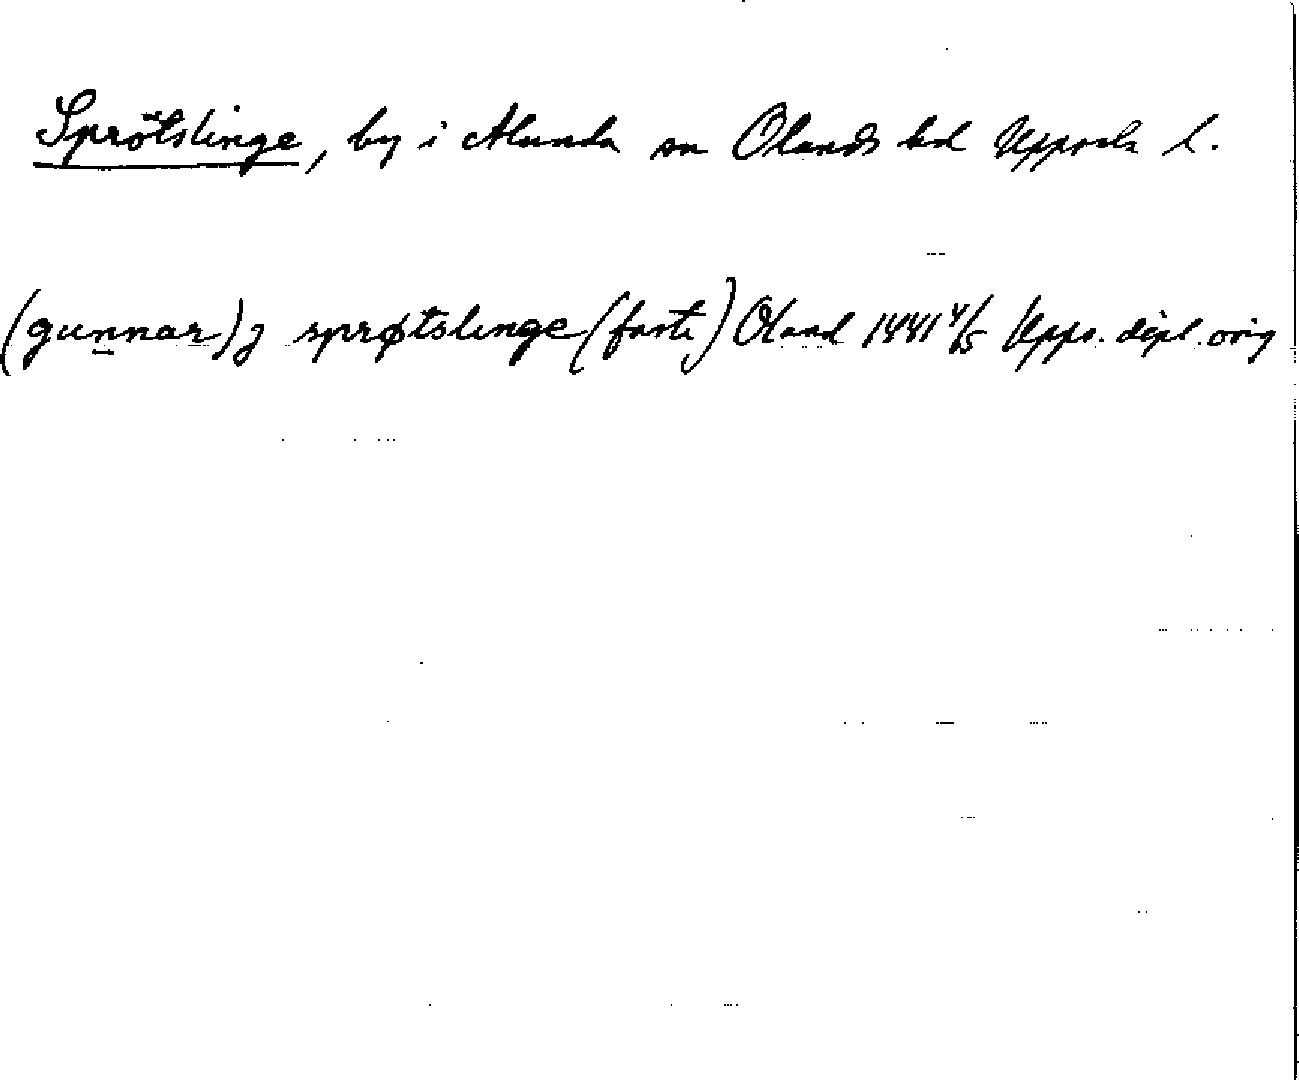 Sprötslinge, by i Alunda sn Olands hd Uppsala l.
(gunnar) j sprøtslinge (faste) Oland 1441 4/5 Upps. dipl. orig